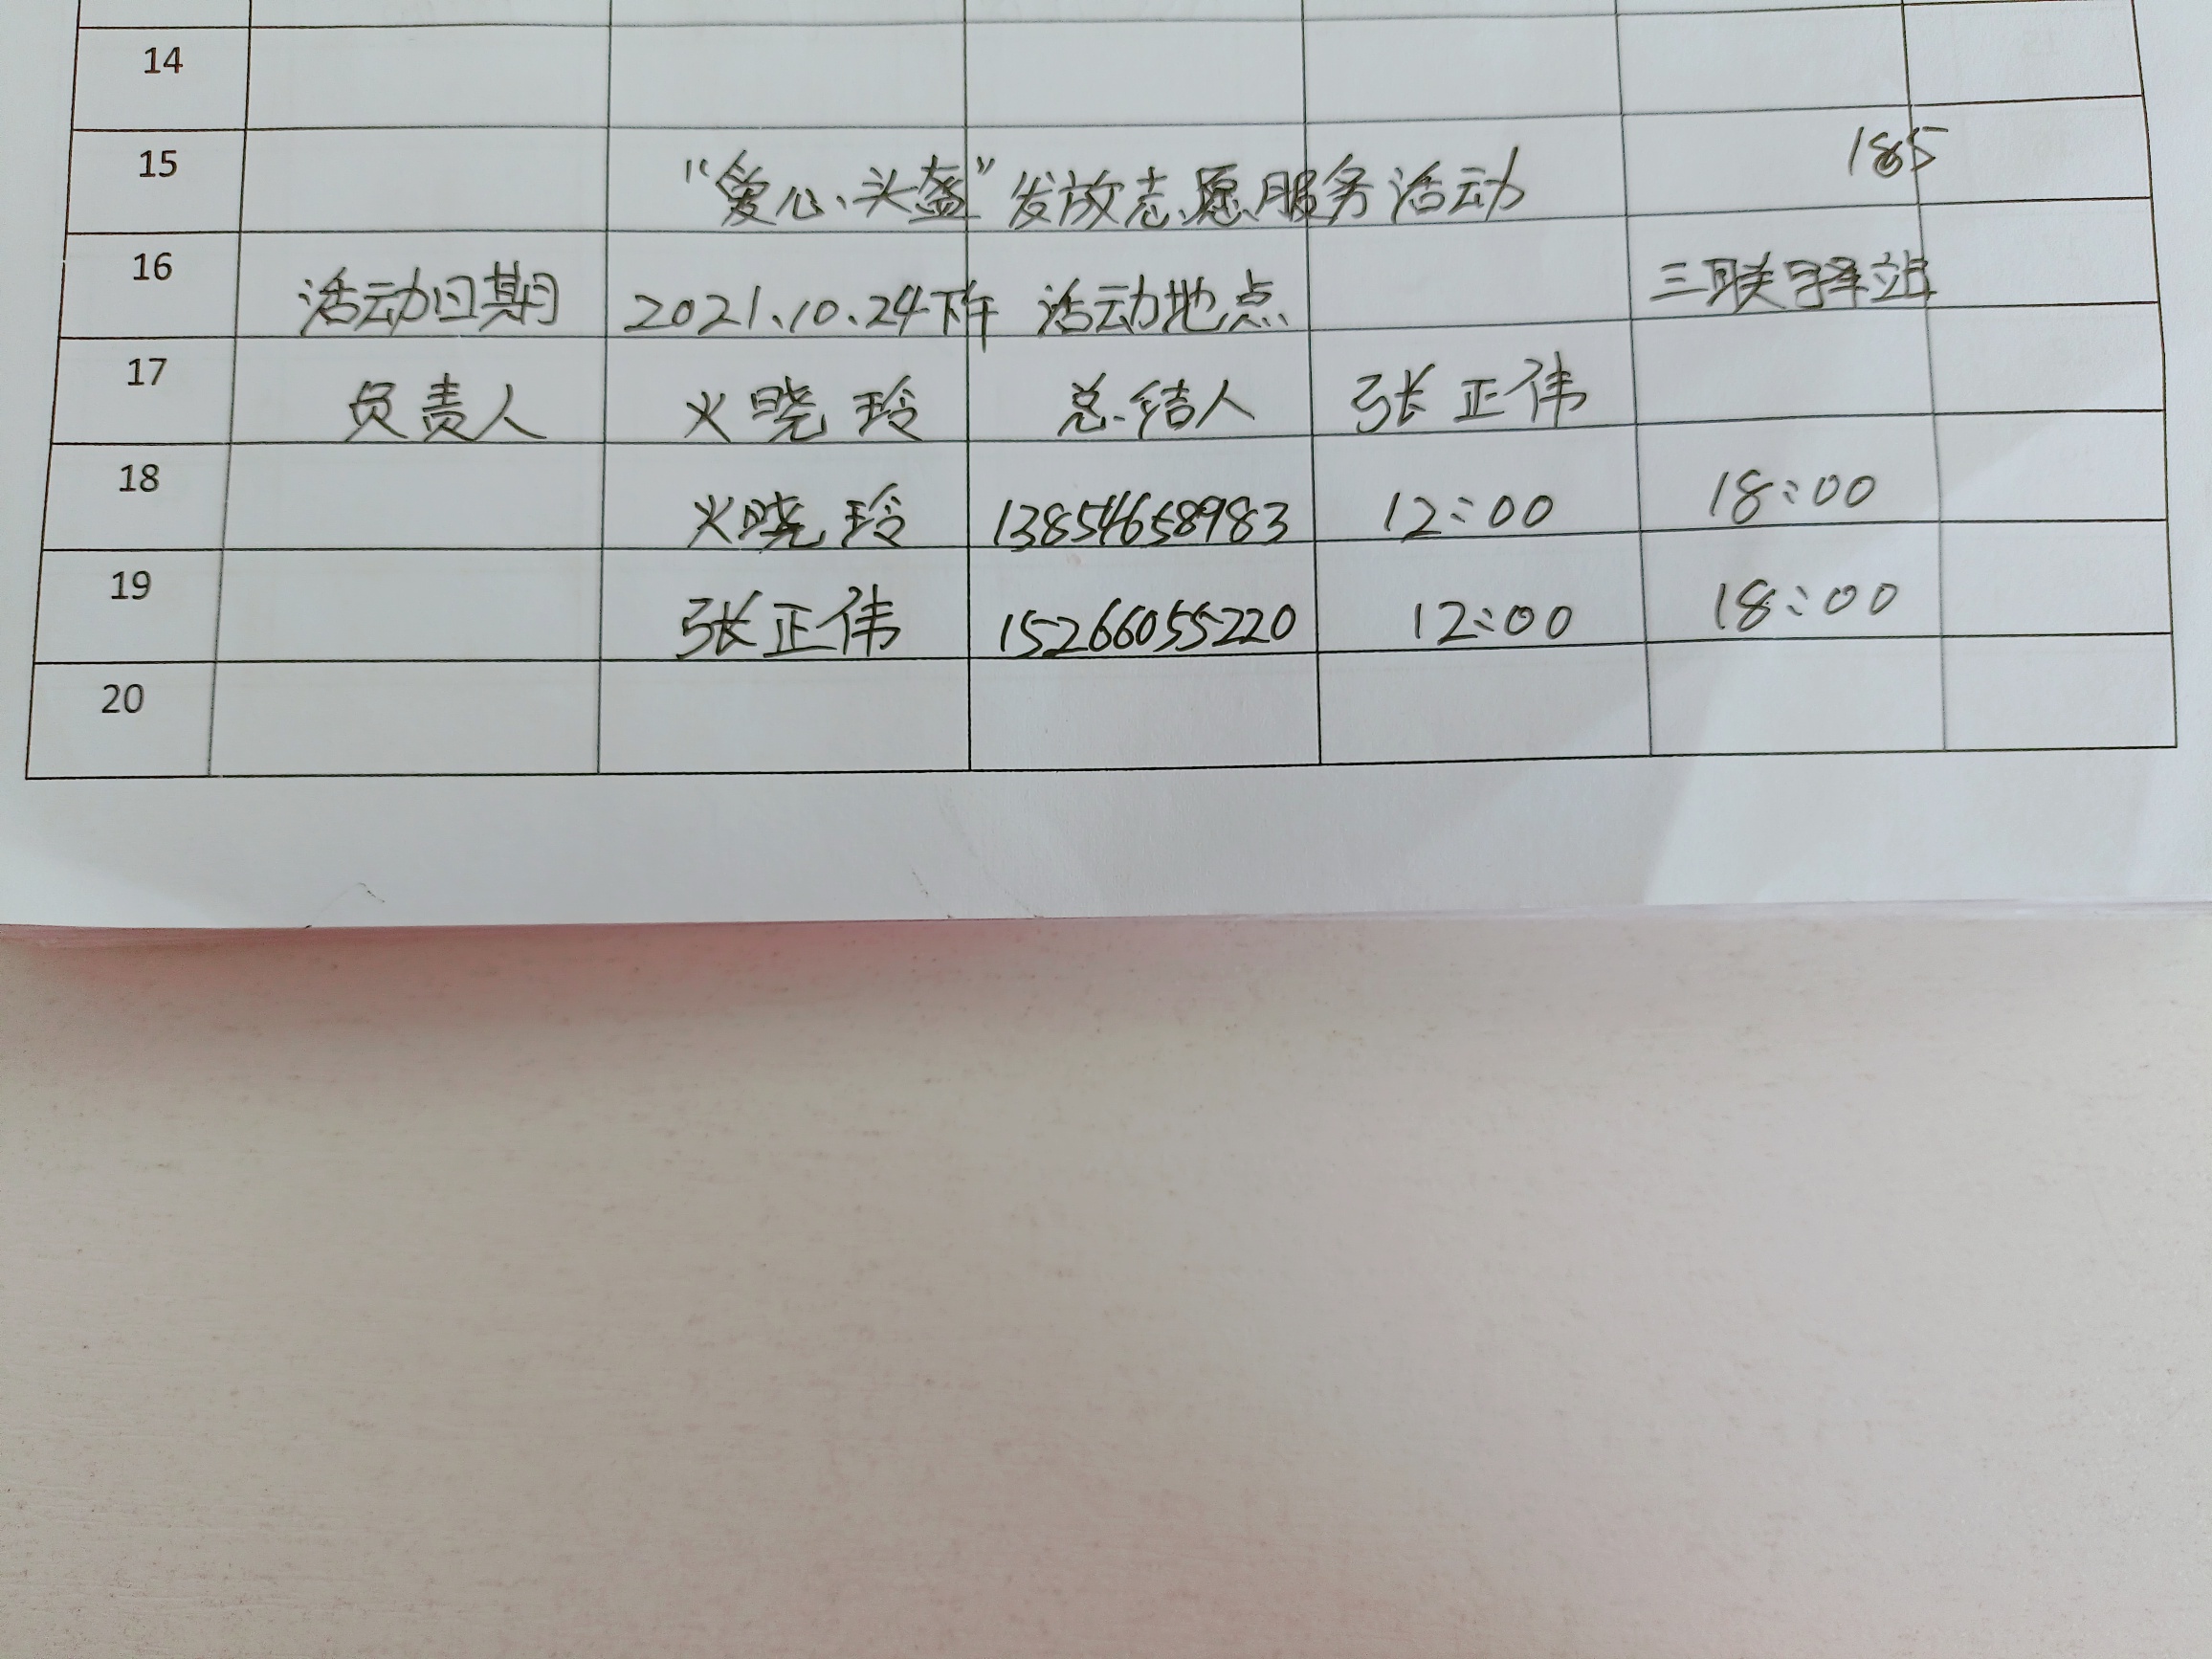 14
15 “爱心头盔”发放志愿服务活动 185
16 活动日期 2021.10.24下午 活动地点 三联驿站
17 负责人 火晓玲 总结人 张正伟
18 火晓玲 13854658983 12:00 18:00
19 张正伟 15266055220 12:00 18:00
20